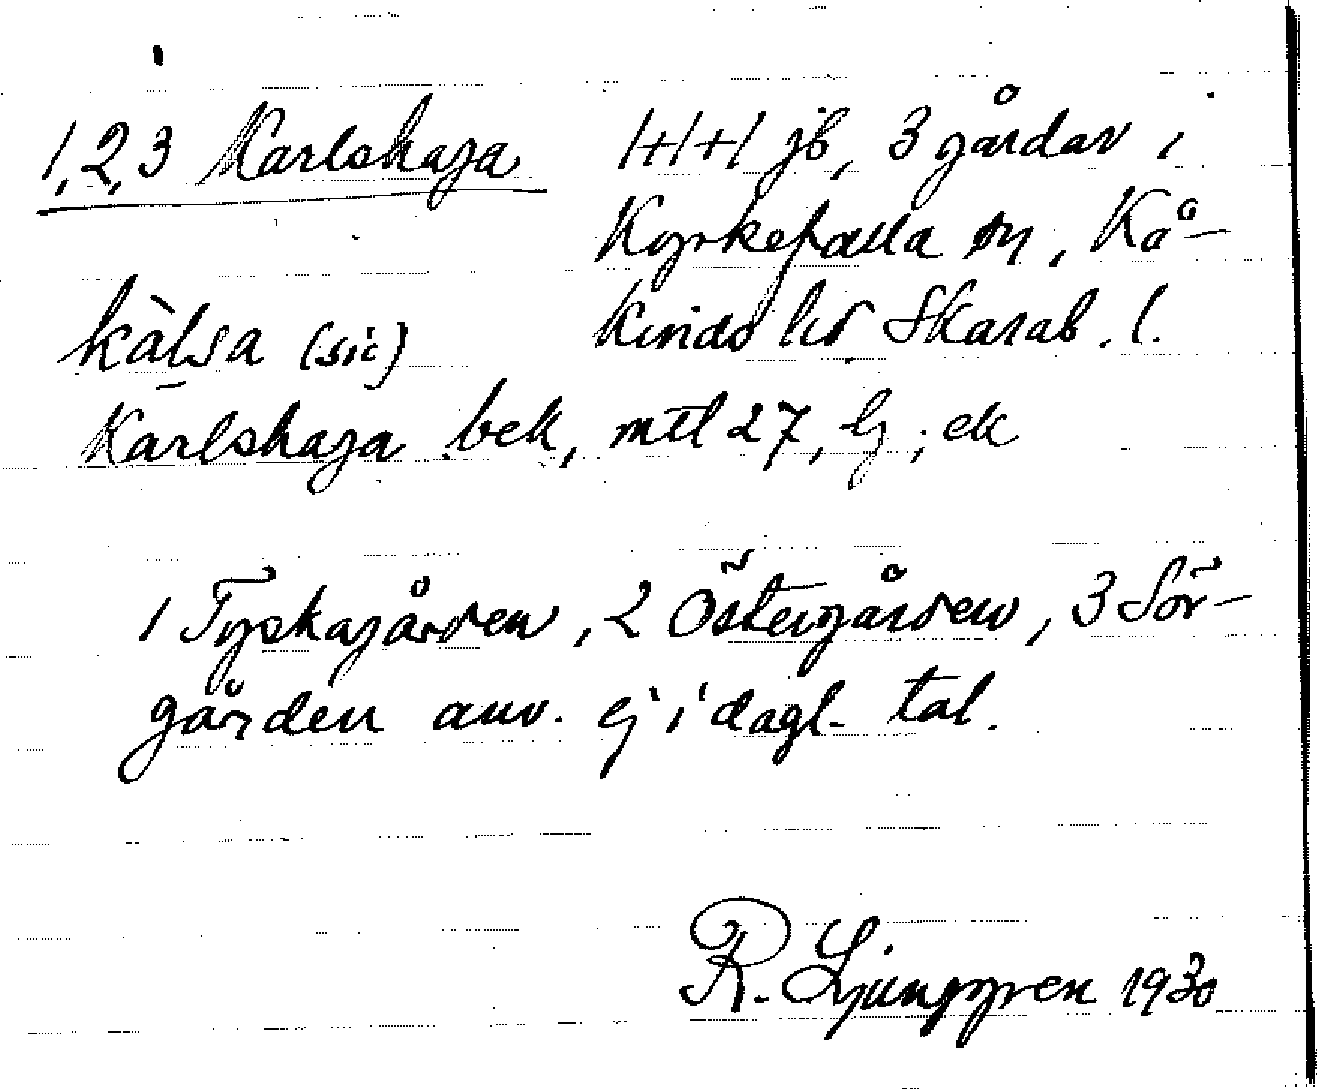 1,2,3 Karlshaga 1+1+1 jb, 3 gårdar i
Kyrkefalla sn, Kå-
kinds hd Skarab. l.
kàlsa (sic)
Karlshaga bek, mtl 27, lj; ek
1 Tyskagården, 2 Östergården, 3 Sör-
gården anv. ej i dagl. tal.
R. Ljunggren 1930